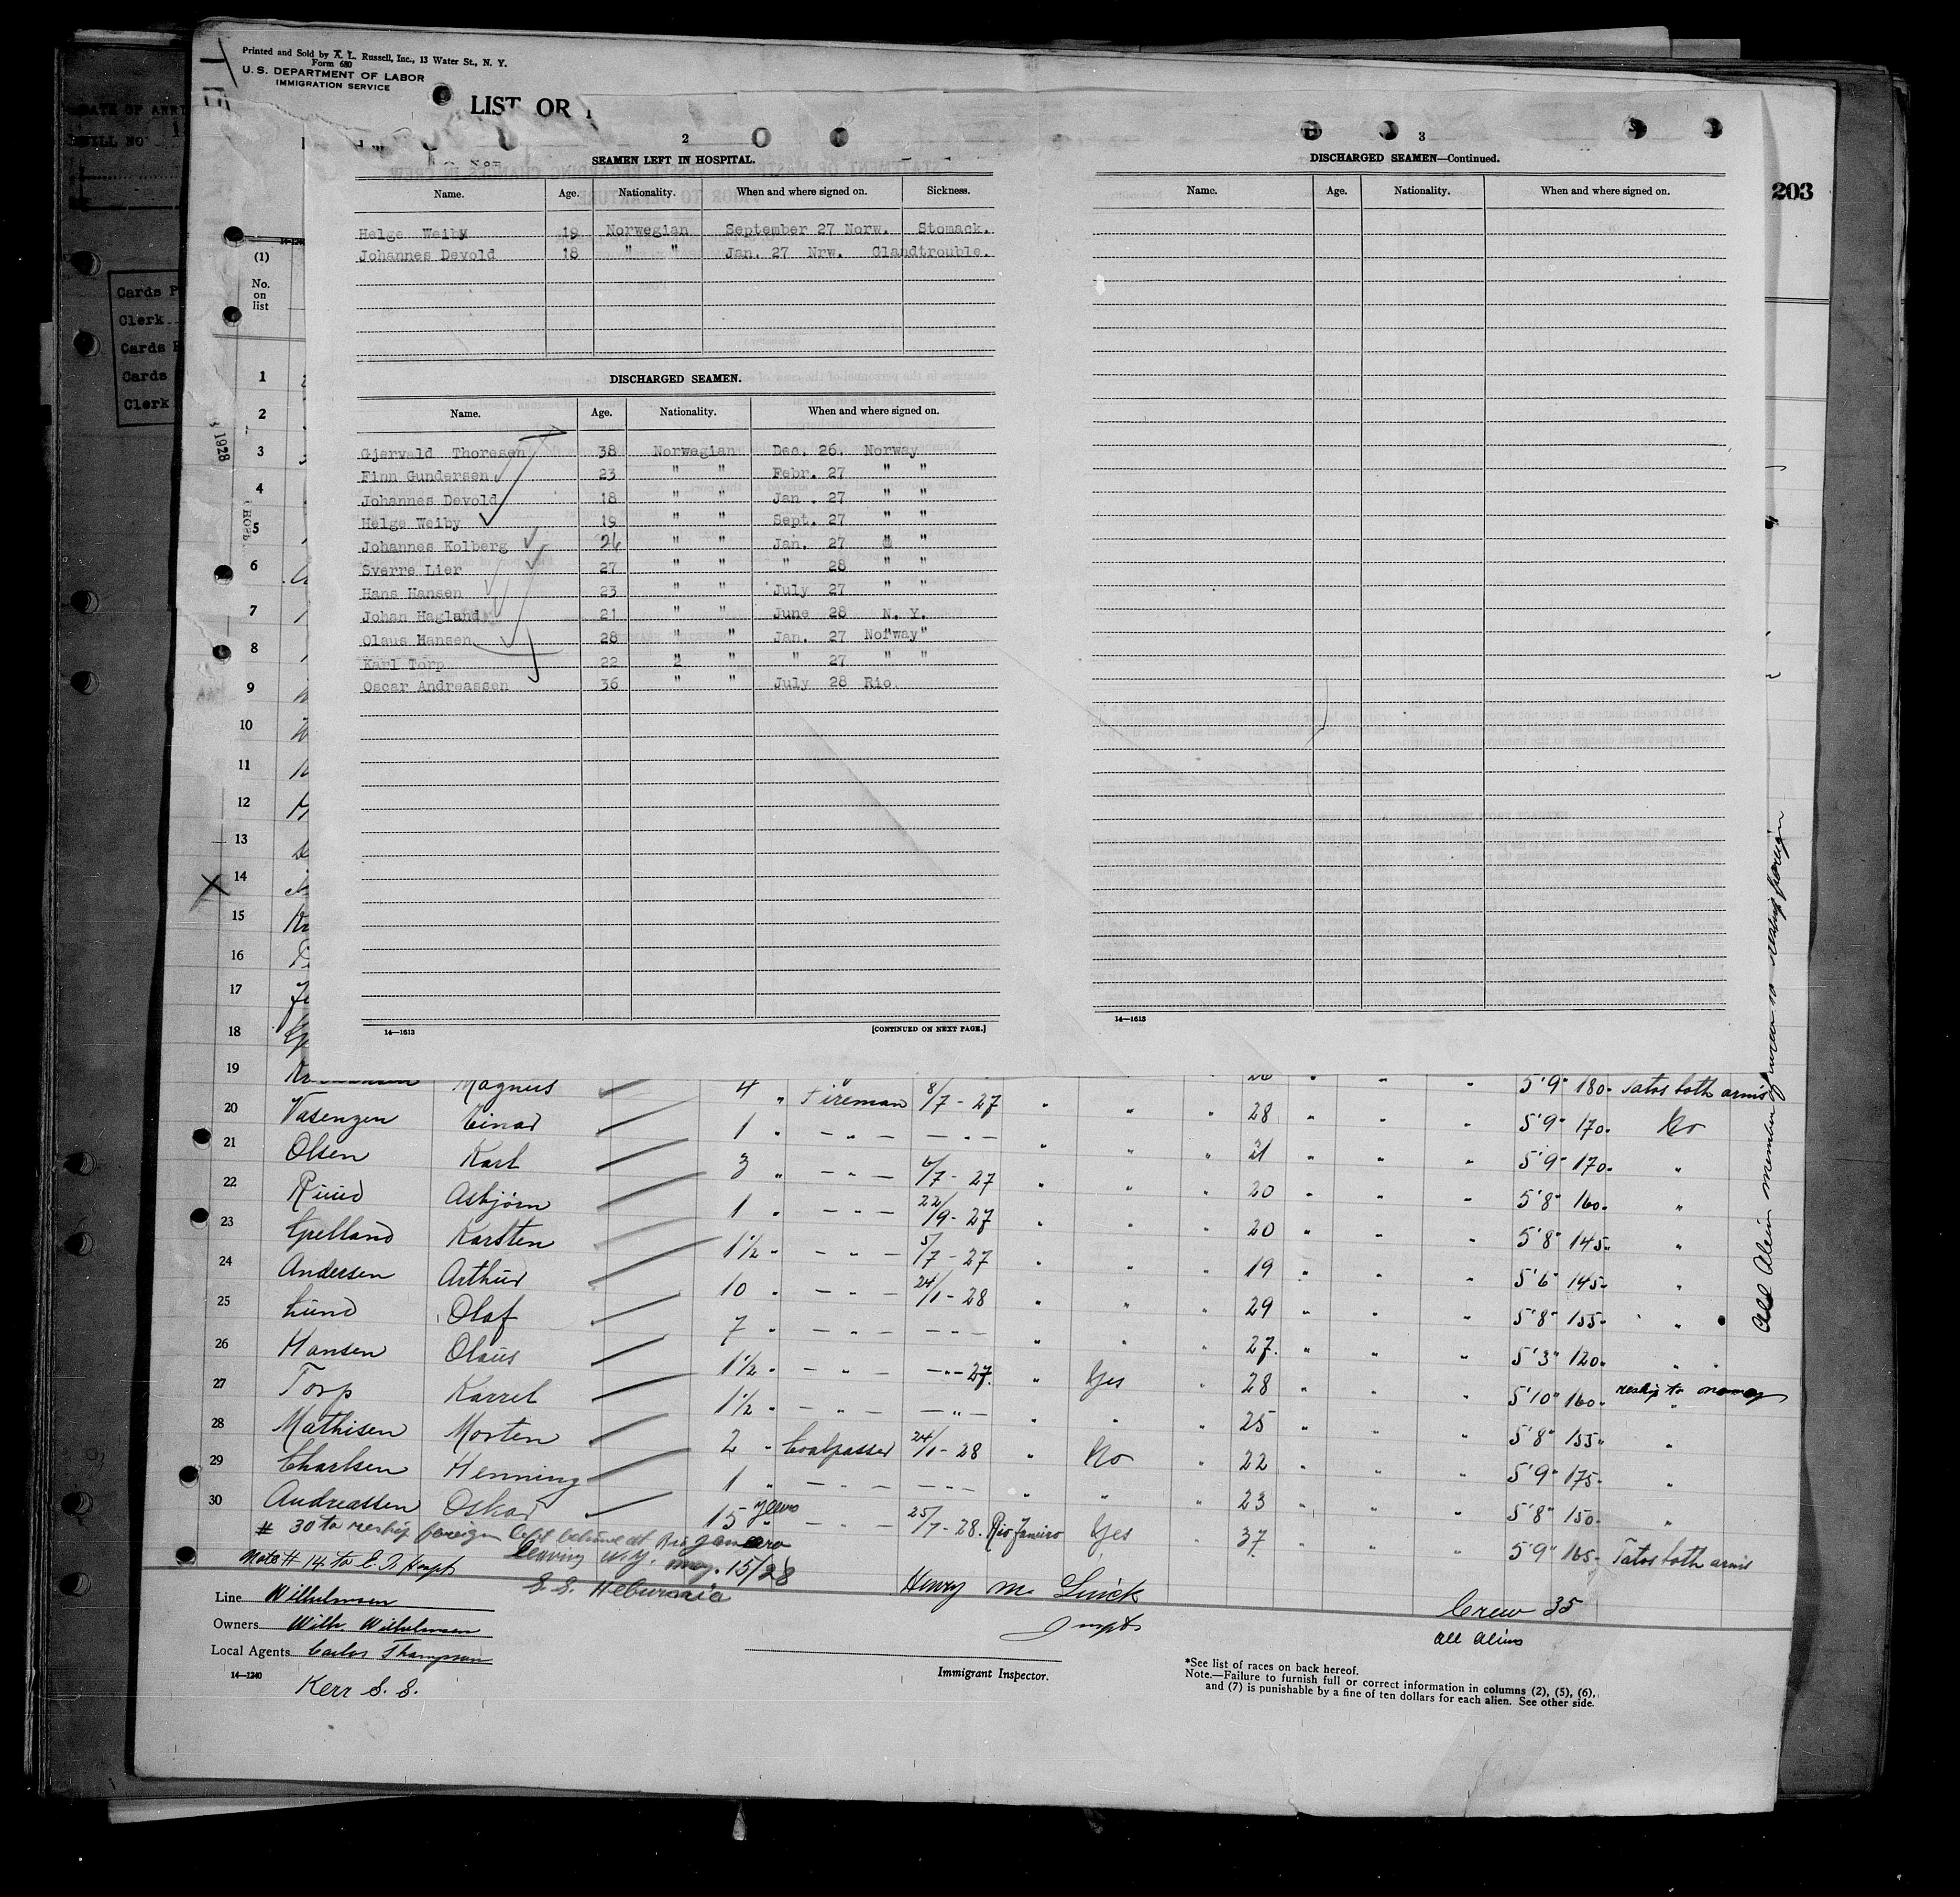 Printed and Sold by A. L. Russell, Inc., 13 Water St., N. Y.
Form 680
U. S. DEPARTMENT OF LABOR
IMMIGRATION SERVICE
LIST OR
203
DATE OF
Cards
Clerk
Cards
Cards
Clerk
(1)
No.
on
list
1928
2
SEAMEN LEFT IN HOSPITAL.
Name. Age. Nationality. When and where signed on. Sickness.
Helge Weiby 19 Norwegian September 27 Norw. Stomack.
Johannes Devold 18 " " Jan. 27 Nrw. Glandtrouble.
DISCHARGED SEAMEN.
Name. Age. Nationality. When and where signed on.
Gjervald Thoresen 38 Norwegian Dec. 26. Norway
Finn Gundersen 23 " " Febr. 27 " "
Johannes Devold 18 " " Jan. 27 " "
Helge Weiby 19 " " Sept. 27 " "
Johannes Kolberg 26 " " Jan. 27 " "
Sverre Lier 27 " " " 28 " "
Hans Hansen 23 " " July 27 " "
Johan Hagland 21 " " June 28 N. Y.
Olaus Hansen 28 " " Jan. 27 Norway"
Karl Torp 22 2 " " 27 " "
Oscar Andreassen 36 " " July 28 Rio.
14—1613 [CONTINUED ON NEXT PAGE.]
3
DISCHARGED SEAMEN—Continued.
Name. Age. Nationality. When and where signed on.
14—1613
1
2
3
4
5
6
7
8
9
10
11
12
13
X 14
15
16
17
18
19 Magnus 4 " Fireman 8/7 - 27 " " " " " " 5'9" 180 Tatos both arms
20 Vasengen Einar 1 " — " — — " — " " " 28 " " " 5'9" 170 No
21 Olsen Karl 3 " — " — 6/7 - 27 " " " 21 " " " 5'9" 170 "
22 Ruud Asbjørn 1 " — " — 22/9 - 27 " " " 20 " " " 5'8" 160 "
23 Grelland Karsten 1½ " — " — 5/7 - 27 " " " 20 " " " 5'8" 145 "
24 Andersen Arthur 10 " — " — 24/1 - 28 " " " 19 " " " 5'6" 145 "
25 Lund Olaf 7 " — " — — " — " " " 29 " " " 5'8" 155 "
26 Hansen Olaus 1½ " — " — — " — 27. " Yes " 27. " " " 5'3" 120 "
27 Torp Karrel 1½ " — " — — " — " " " 28 " " " 5'10" 160 "
28 Mathisen Morten 2 " Coalpasser 24/1 - 28 " No " 25 " " " 5'8" 155 "
29 Charlsen Henning 1 " — " — — " — " " " 22 " " " 5'9" 175 "
30 Andreassen Oskar 15 years — " — 25/7 - 28. Rio Janeiro Yes " 23 " " " 5'8" 150 "
37. " " " 5'9" 165 Tatos both arms
# 30 to reship foreign left behind at Rio Janeiro
leaving N.Y. May. 15/28
Note # 14 to E. I. Hospt
Henry Mc
Inspt
Crew 35
All Aliens
All Alien member of crew to reship foreign
Line Wilhelmsen
Owners Wilh. Wilhelmsen
Local Agents Carlos Thompson
14—1240
Kerr S. S.
Immigrant Inspector.
*See list of races on back hereof.
Note.—Failure to furnish full or correct information in columns (2), (5), (6),
and (7) is punishable by a fine of ten dollars for each alien. See other side.